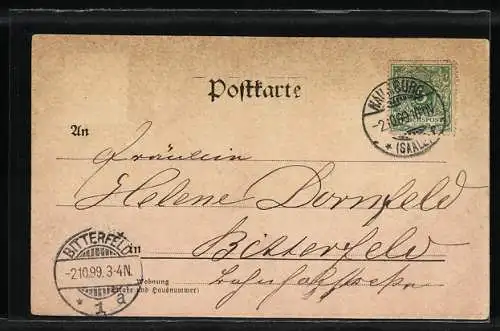 Postkarte
NAUMBURG
-2.10.99.
* (SAALE)
REICHSPOST
An
Fräulein
Helene Dornfeld
in
Bitterfeld
BITTERFELD
-2.10.99. 3-4N.
* 1 a
Wohnung
(Straße und Hausnummer)
Bahnhofstrasse